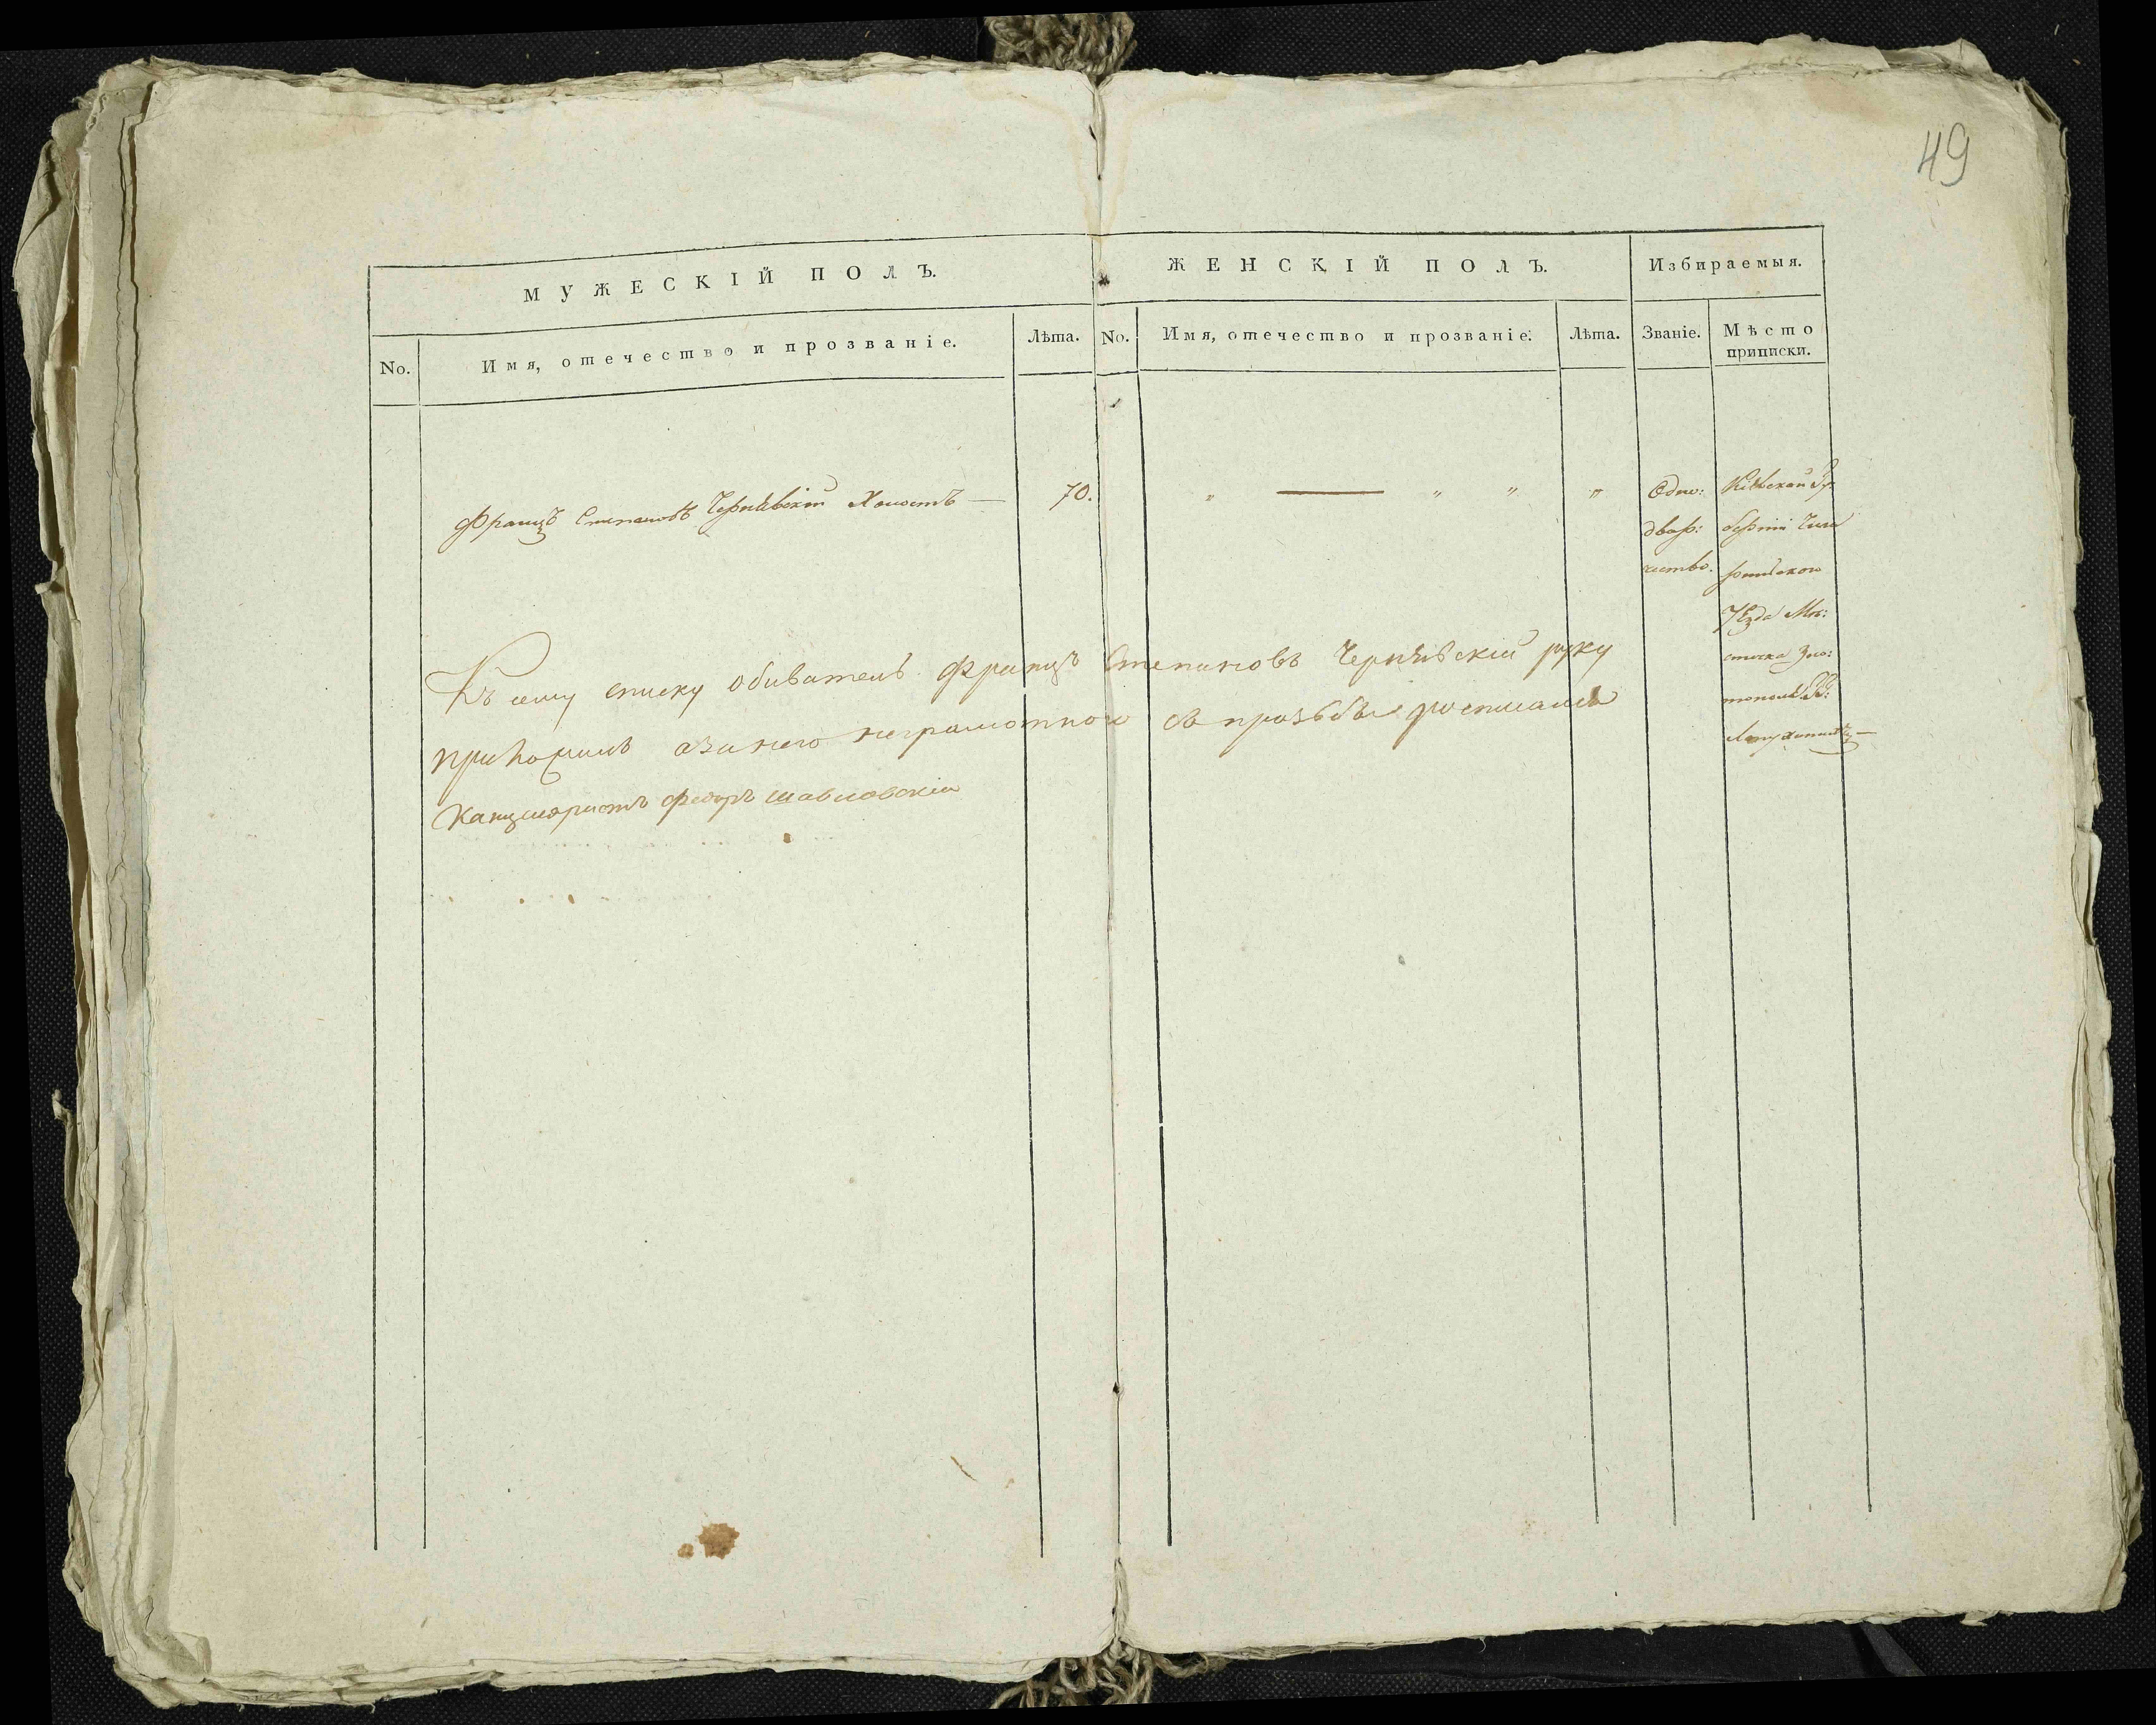 49
МУЖЕСКІЙ ПОЛЪ.
ЖЕНСКІЙ ПОЛЪ.
Избираемыя.
No.
Имя, отечество и прозваніе.
Лѣта.
No.
Имя, отечество и прозваніе.
Лѣта.
Званіе.
Мѣсто
приписки.
Францъ Степановъ Чернѣвскій Холостъ —
70.
„ — „ „
„
Одно:
двор:
чество.
Кіевской Гу
берніи Чиги
ринского
Уѣзда Мѣ:
стечка Зло:
тополя
Къ сему списку обиватель Францъ Степановъ Чернѣвскій руку
приложилъ азанего неграмотного съ прозьбы росписался
Канцеляристъ Федоръ Шавловскій